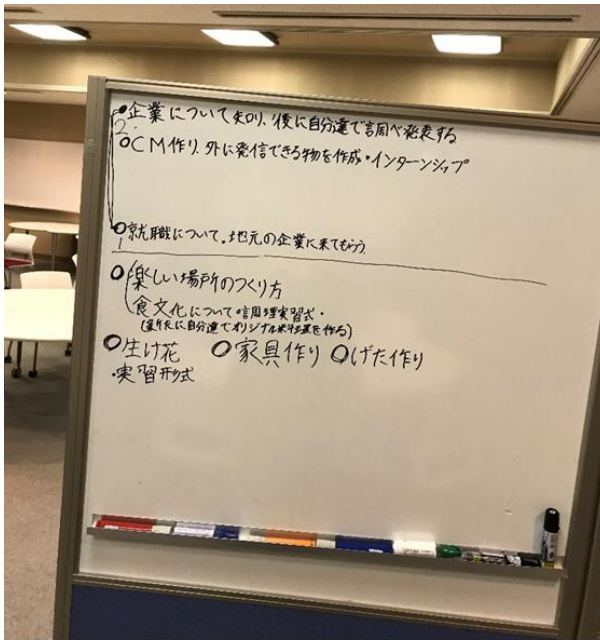 ●企業について知り、後に自分達で調べ発表する
2.
○CM作り.外に発信できる物を作成・インターンシップ
○就職について.地元の企業に来てもらう
1
○楽しい場所のつくり方
食文化について調理実習式・
(最後に自分達でオリジナル料理を作る)
○生け花 ○家具作り ○げた作り
・実習形式